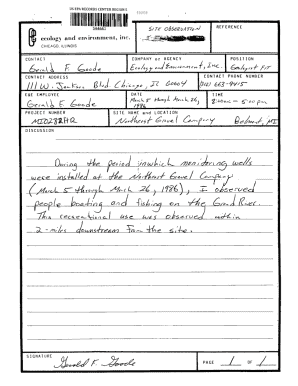 US EPA RECORDS CENTER REGION 5
ecology and environment, inc.
CHICAGO, ILLINOIS
SITE OBSERVATION
REFERENCE
CONTACT
Gerald F. Goode
COMPANY or AGENCY
Ecology and Environment, Inc.
POSITION
Geologist FIT
CONTACT ADDRESS
111 W. Jackson Blvd Chicago, IL 60604
CONTACT PHONE NUMBER
(312) 663-9415
E&E EMPLOYEE
Gerald F. Goode
DATE
March 5 through March 26, 1986
TIME
- 5:00pm
PROJECT NUMBER
SITE NAME and LOCATION
Northwest Gravel Company Belmont, MI
DISCUSSION
During the period in which monitoring wells
were installed at the Northwest Gravel Company
(March 5 through March 26, 1986), I observed
people boating and fishing on the Grand River.
This recreational use was observed within
2-miles downstream from the site.
SIGNATURE
Gerald F. Goode
PAGE 1 of 1